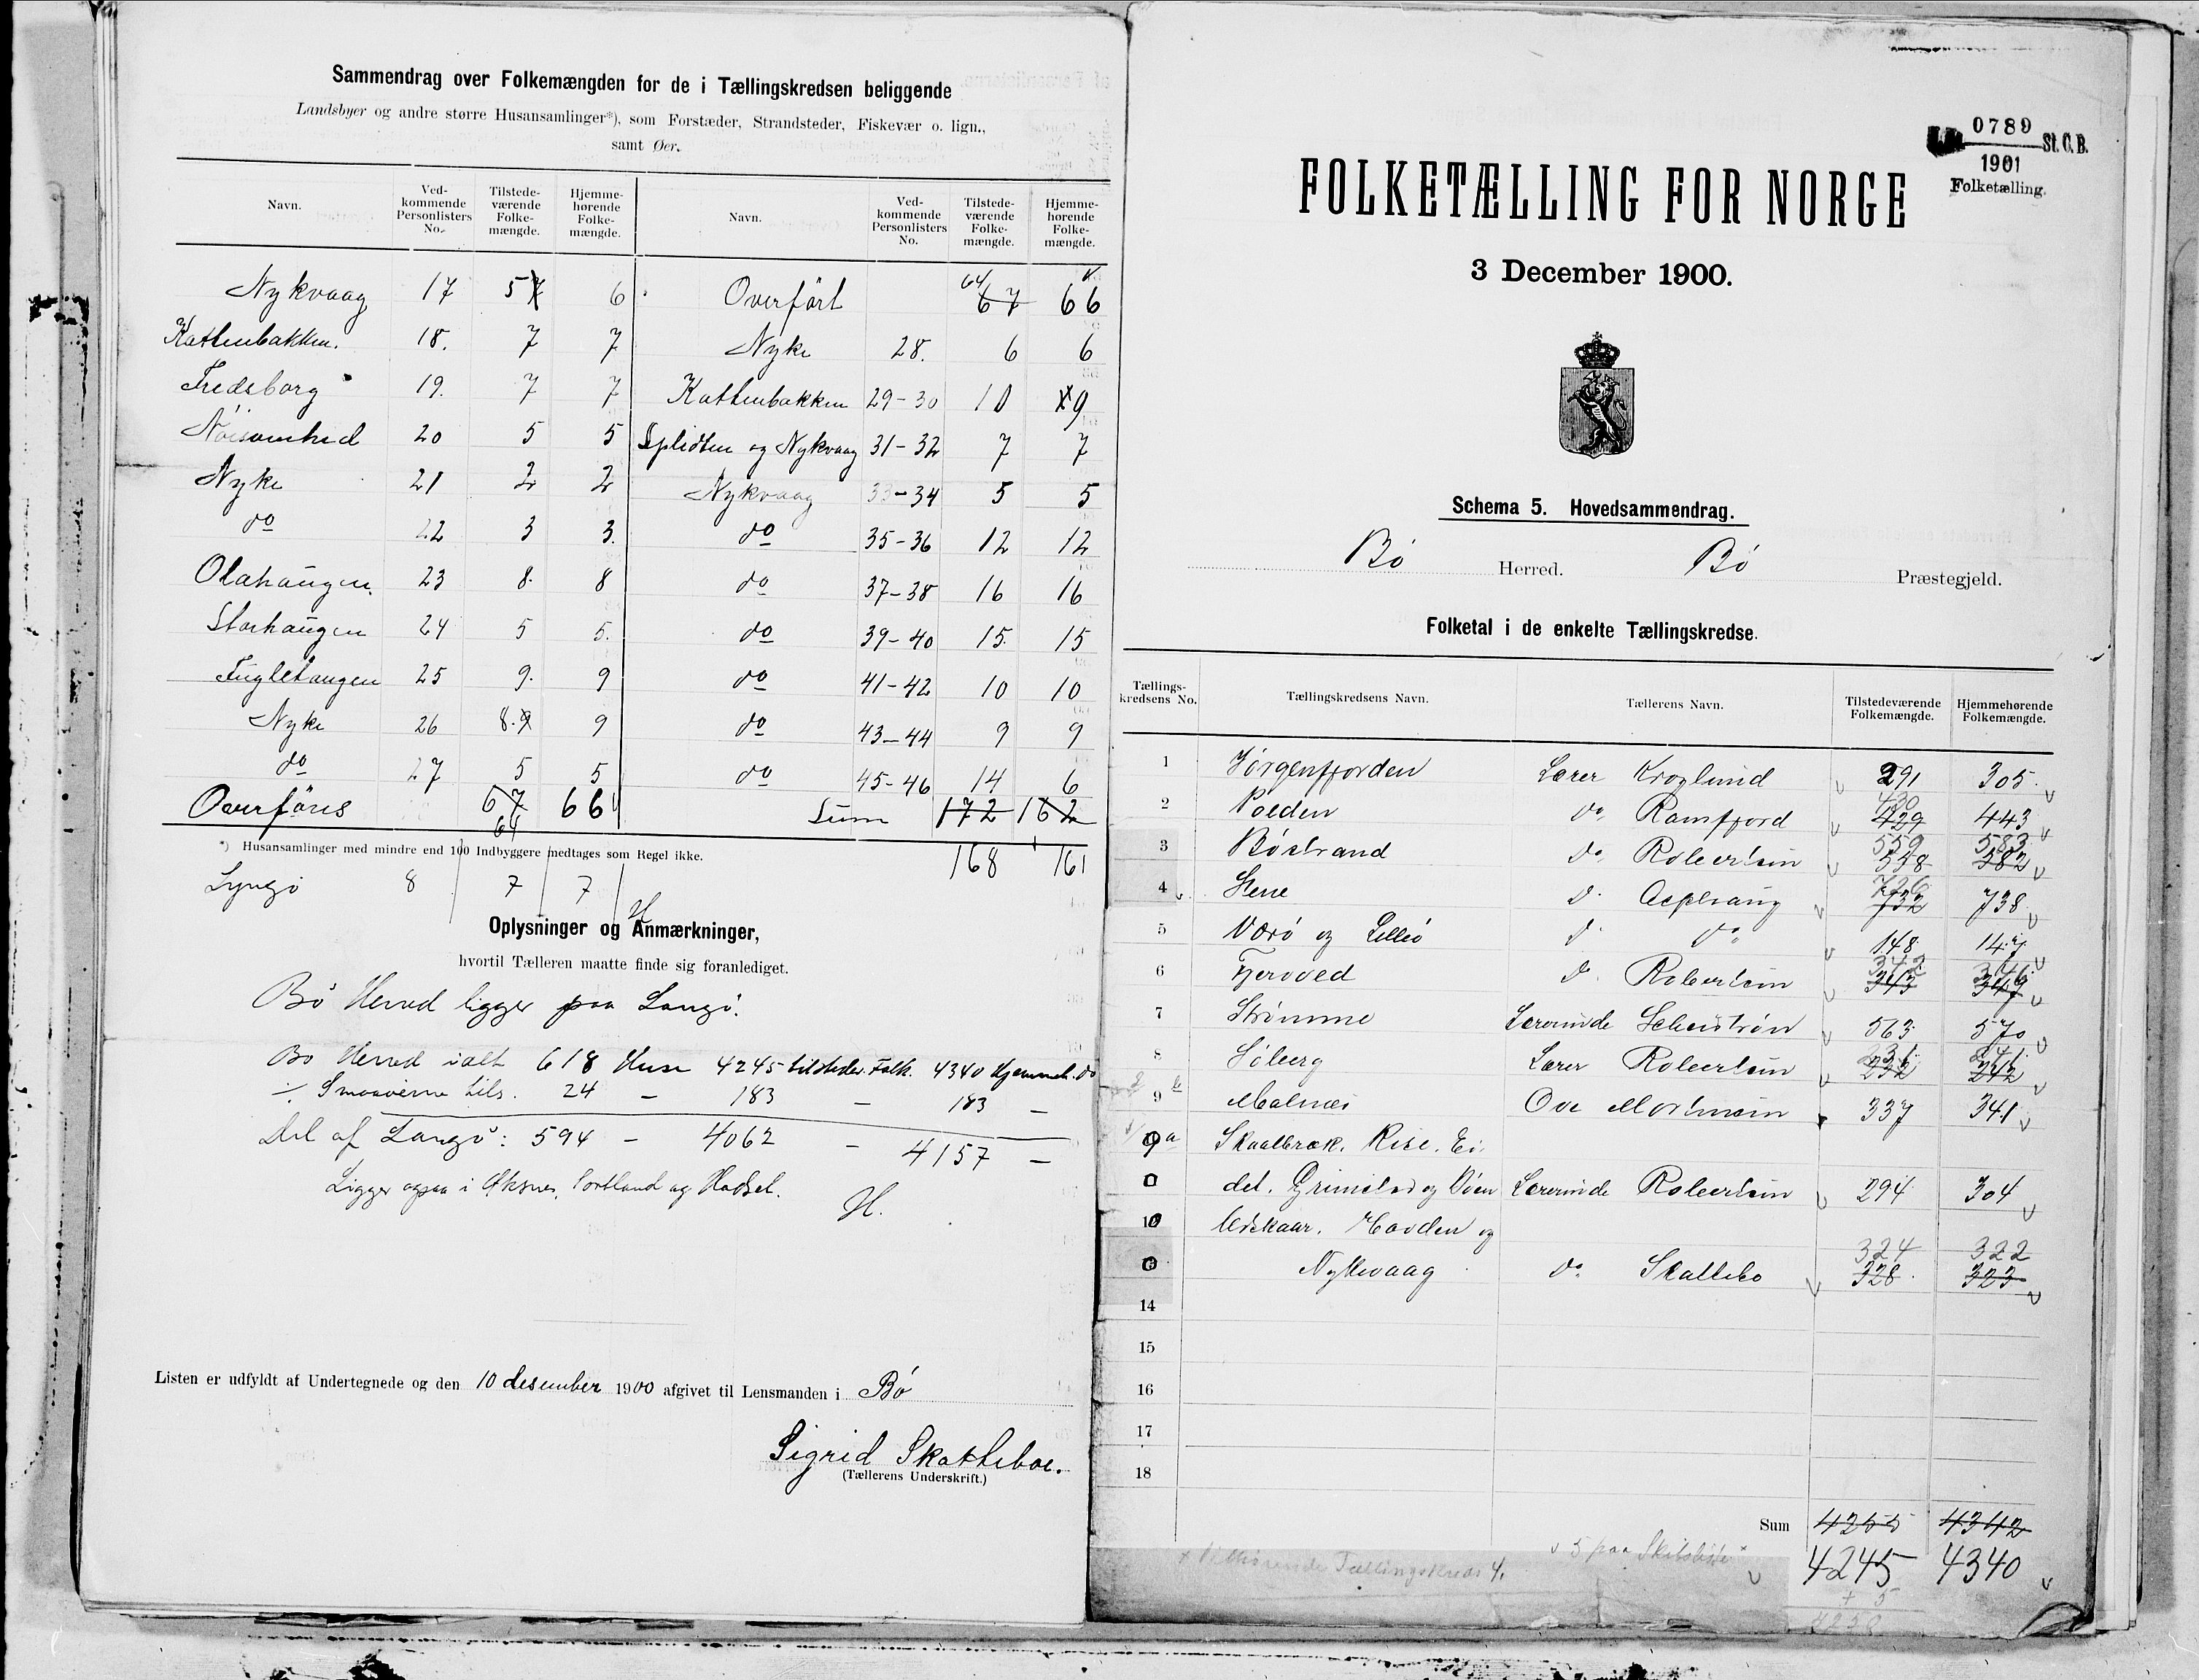 Sammendrag over Folkemængden for de i Tællingskredsen beliggende
Landsbyer og andre større Husansamlinger*), som Forstæder, Strandsteder, Fiskevær o. lign.,
samt Øer.
Navn. Vedkommende Personlisters No. Tilstedeværende Folkemængde. Hjemmehørende Folkemængde.
Nykvaag 17 5 7 6
Kattenbakken. 18. 7 7
Fredsborg 19. 7 7
Nøisomhed 20 5 5
Nyke 21 2 2
do 22 3 3.
Olahaugen. 23 8. 8
Storhaugen 24 5 5.
Fugletangen 25 9. 9
Nyke 26 8. 9 9
do 27 5 5
Overføres 67 66
64
Navn. Vedkommende Personlisters No. Tilstedeværende Folkemængde. Hjemmehørende Folkemængde.
Overført 64 67 66
Nyke 28. 6 6
Kattenbakken 29-30 10 9
Splidten og Nykvaag 31-32 7 7
Nykvaag 33-34 5 5
do 35-36 12 12
do 37-38 16 16
do 39-40 15. 15
do 41-42 10 10
do 43-44 9 9
do 45-46 14 6
Sum 172 162
168 161
*) Husansamlinger med mindre end 100 Indbyggere medtages som Regel ikke.
Lyngø 8 7 7
H
Oplysninger og Anmærkninger,
hvortil Tælleren maatte finde sig foranlediget.
Bø Herred ligger paa Langø.
Bø Herred ialt 618 Huse 4245 tilstedev. Folk. 4340 Hjemmeh. do
÷ Smaaøerne tils. 24 – 183 – 183 –
Del af Langø: 594 – 4062 – 4157 –
Ligger ogsaa i Øksnes, Sortland og Hadsel.
H.
Listen er udfyldt af Undertegnede og den 10 desember 1900 afgivet til Lensmanden i Bø
Sigrid Skatteboe.
(Tællerens Underskrift.)
0789
1901
St. C. B.
Folketælling.
FOLKETÆLLING FOR NORGE
3 December 1900.
Schema 5. Hovedsammendrag.
Bø Herred. Bø Præstegjeld.
Folketal i de enkelte Tællingskredse.
Tællingskredsens No. Tællingskredsens Navn. Tællerens Navn. Tilstedeværende Folkemængde. Hjemmehørende Folkemængde.
1 Jørgenfjorden Lærer Kroglund 291 305
2 Volden do Ramfjord 430 429 443
3 Bøstrand do Robertsen 559 558 583 582
4 Stene do 726 732 738
5 Værø og Lillø do do 148 147
6 Fjærvoll do Robertsen 342 343 346 347
7 Strømme Lærerinde 563 570
8 Søberg Lærer Robertsen 231 232 241 242
9 b Malnæs Ove Mortensen 337 341
9a Skaalbræk. Rise. Ei-
det. Grimstad og Vøen Lærerinde Robertsen 294 304
10 Uvskaar. Hovden og
Nykvaag do Skattebo 324 328 322 323
14
15
16
17
18
Sum 4255 4342
4245 4340
x Vedkommende Tællingskreds 4. 5 paa Skibsliste
+ 5